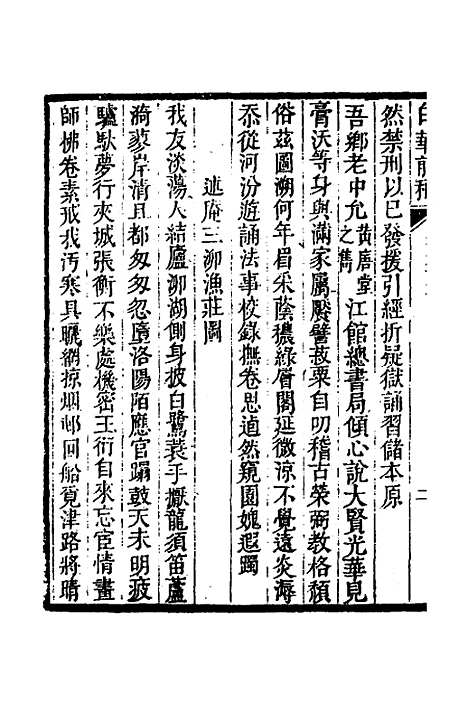 然禁刑以已發援引經折疑獄誦習儲本原
吾鄉老中允黃唐堂之雋江館總書局傾心說大賢光華見
膏沃等身與滿家屬饜譬菽粟自叨稽古榮弼教格頹
俗茲圖溯何年眉采蔭穠綠層閣延微涼不覺遠炎海
忝從河汾遊誦法事校錄撫卷思遒然窺園媿遐躅
述庵三泖漁莊圖
我友淡蕩人結廬泖湖側身披白鷺蓑手擫龍須笛蘆
漪蓼岸清且都匆匆忽墮洛陽陌應官蹋鼓天未明疲
驢馱夢行夾城張衡不樂處機密王衍自來忘宦情畫
師拂卷素戒我汚寒具曬網掠烟邨回船覓津路將晴